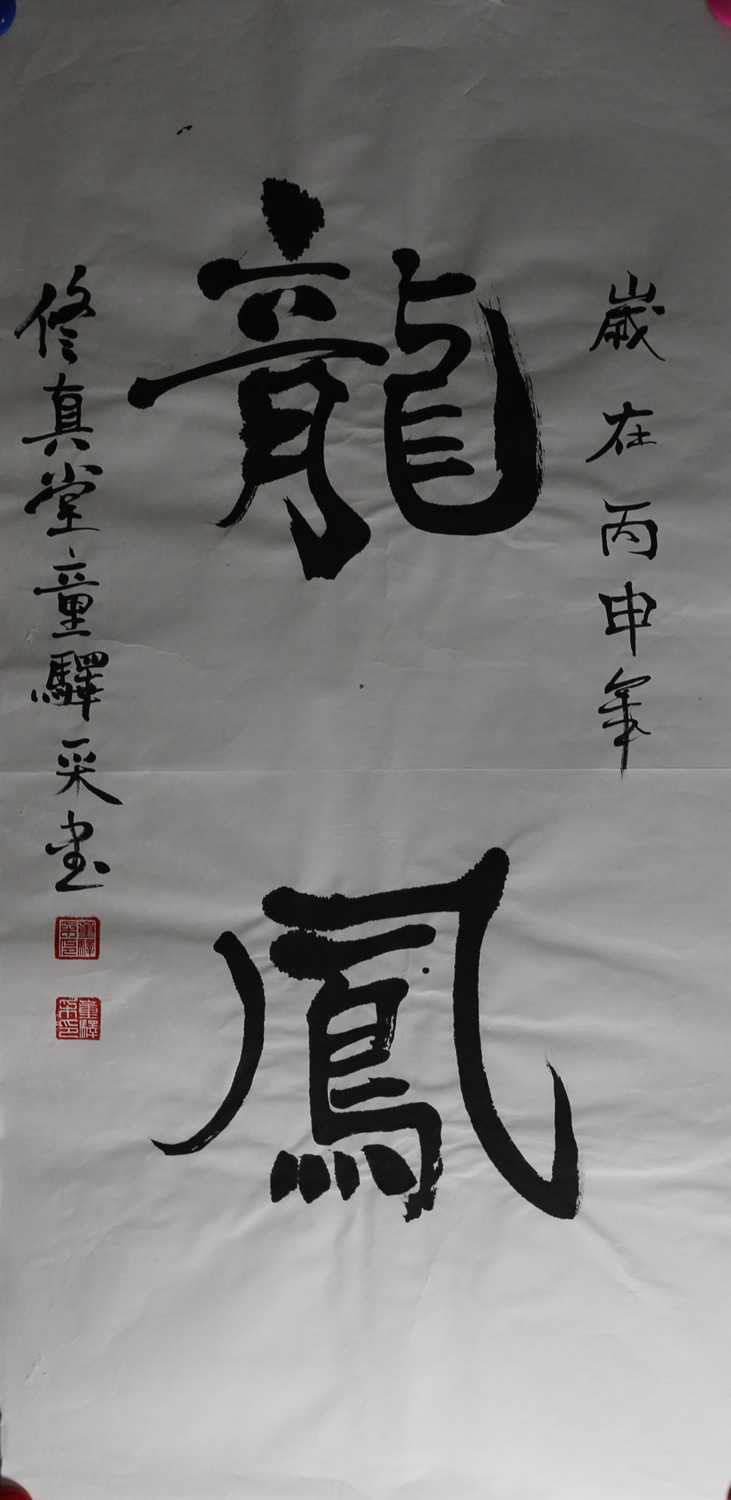 歲在丙申年
龍鳳
修真堂童驛采書